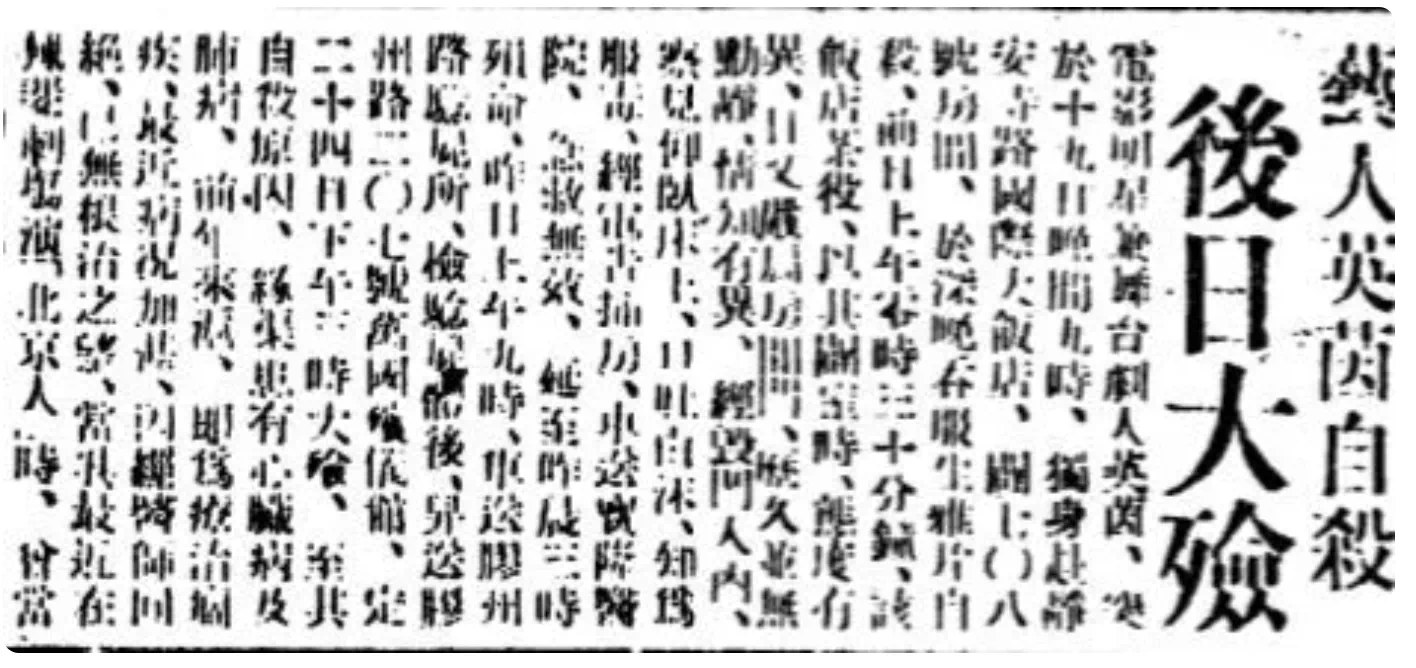 藝人英茵自殺
後日大殮
電影明星兼舞台劇人英茵、突
於十九日晚間九時、獨身赴靜
安寺路國際大飯店、闢七〇八
號房間、於深晚吞服生鴉片自
殺、前日上午零時三十分鐘、該
飯店茶役、以其闢室時、態度有
異、且又嚴扃房間門、歷久並無
動靜、情知有異、經毀門入內、
察見仰臥床上、口吐白沫、知為
服毒、經電告捕房、車送寶隆醫
院、急救無效、延至昨晨三時
殞命、昨日上午九時、車送膠州
路驗屍所、檢驗屍體後、舁送膠
州路二〇七號萬國殯儀館、定
二十四日下午三時大殮、至其
自殺原因、緣渠患有心臟病及
肺病、前年來滬、即為療治痼
疾、最近病況加甚、因經醫師回
絕、已無根治之望、當其最近在
辣斐劇場演「北京人」時、曾當